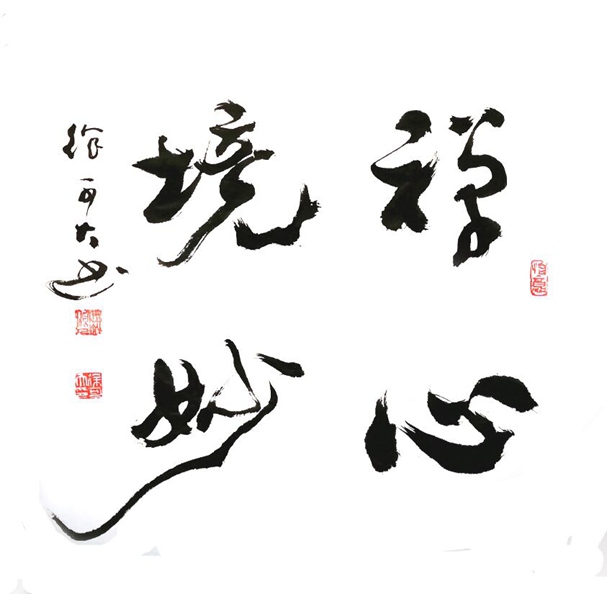 禅心
境妙
徐可大书